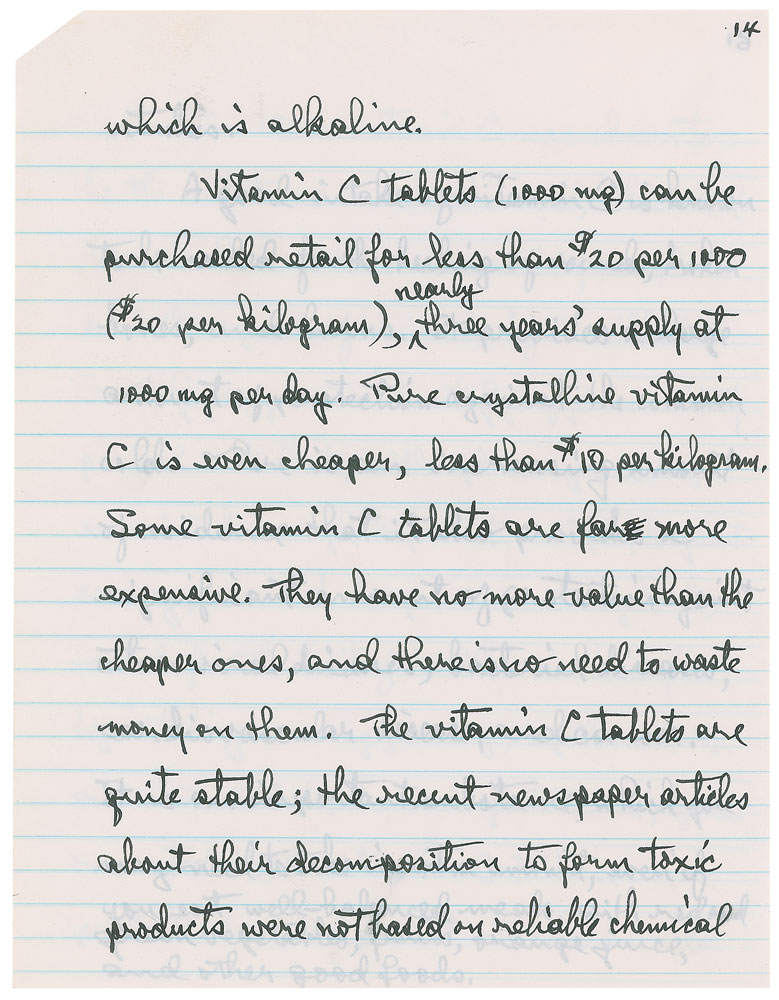 14
which is alkaline.
Vitamin C tablets (1000 mg) can be
purchased retail for less than $20 per 1000
nearly
($20 per kilogram), ^ three years' supply at
1000 mg per day. Pure crystalline vitamin
C is even cheaper, less than $10 per kilogram.
Some vitamin C tablets are far more
expensive. They have no more value than the
cheaper ones, and there is no need to waste
money on them. The vitamin C tablets are
quite stable; the recent newspaper articles
about their decomposition to form toxic
products were not based on reliable chemical